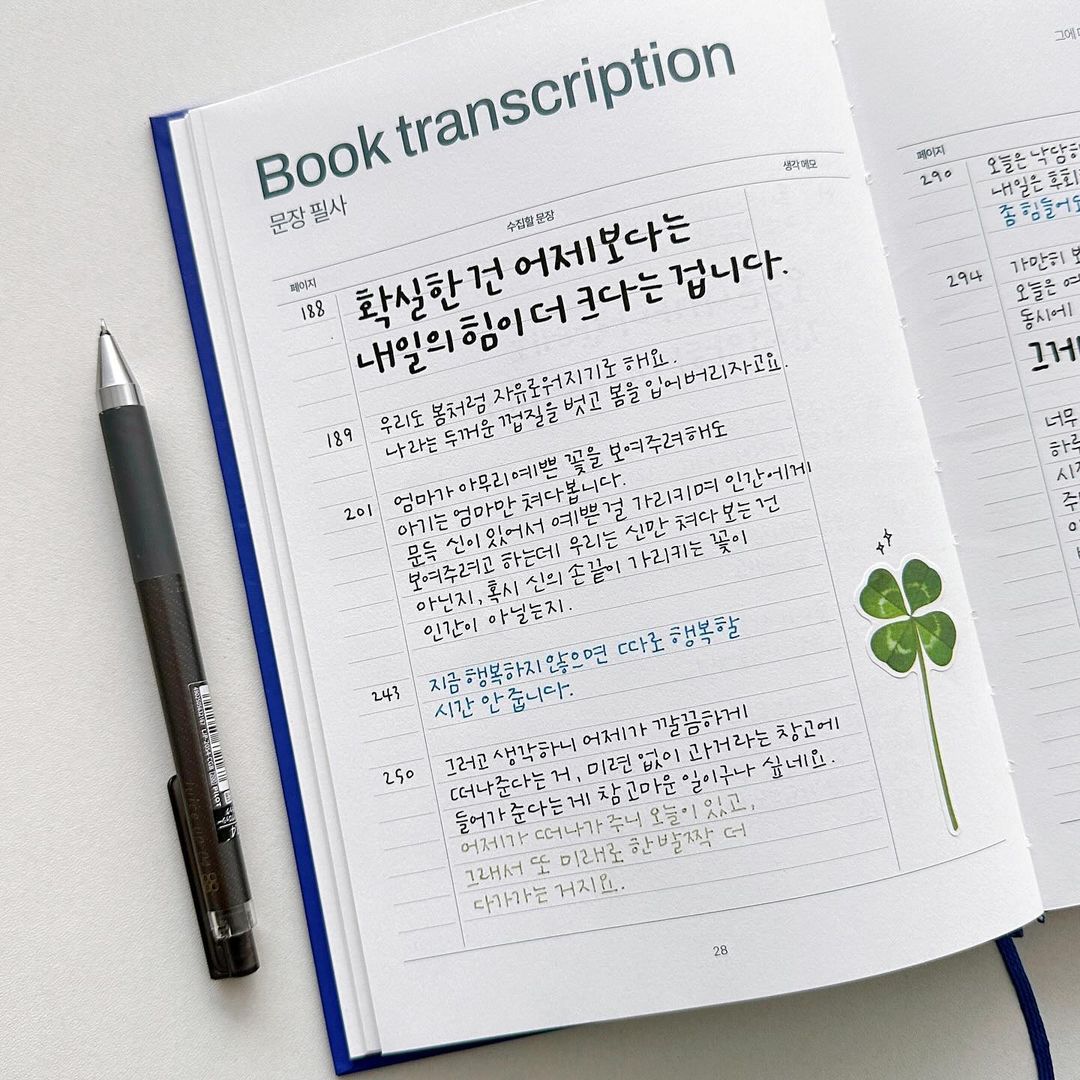 Book transcription
문장 필사
페이지
수집할 문장
생각 메모
188
확실한 건 어제보다는
내일의 힘이 더 크다는 겁니다.
189
우리도 봄처럼 자유로워지기로 해요.
나라는 두꺼운 껍질을 벗고 봄을 입어버리자고요.
201
엄마가 아무리 예쁜 꽃을 보여주려해도
아기는 엄마만 쳐다봅니다.
문득 신이 있어서 예쁜걸 가리키며 인간에게
보여주려고 하는데 우리는 신만 쳐다보는건
아닌지, 혹시 신의 손끝이 가리키는 꽃이
인간이 아닐는지.
243
지금 행복하지 않으면 따로 행복할
시간 안 줍니다.
250
그러고 생각하니 어제가 깔끔하게
떠나준다는 거, 미련 없이 과거라는 창고에
들어가 준다는게 참 고마운 일이구나 싶네요.
어제가 떠나가 주니 오늘이 있고,
그래서 또 미래로 한 발짝 더
다가가는 거지요.
28
페이지
290
오늘은 낙담하
내일은 후회
좀 힘들어도
294
가만히 보
오늘은 예
동시에
그게
너무
하루
시
주